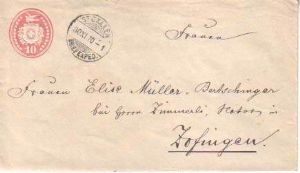 10
ST. GALLEN
30 XI 70 - 1
BRIEFEXPED.
Frauen
Frauen Elise Müller-Bertschinger
bei Herrn Zimmerli, Notar in
Zofingen.